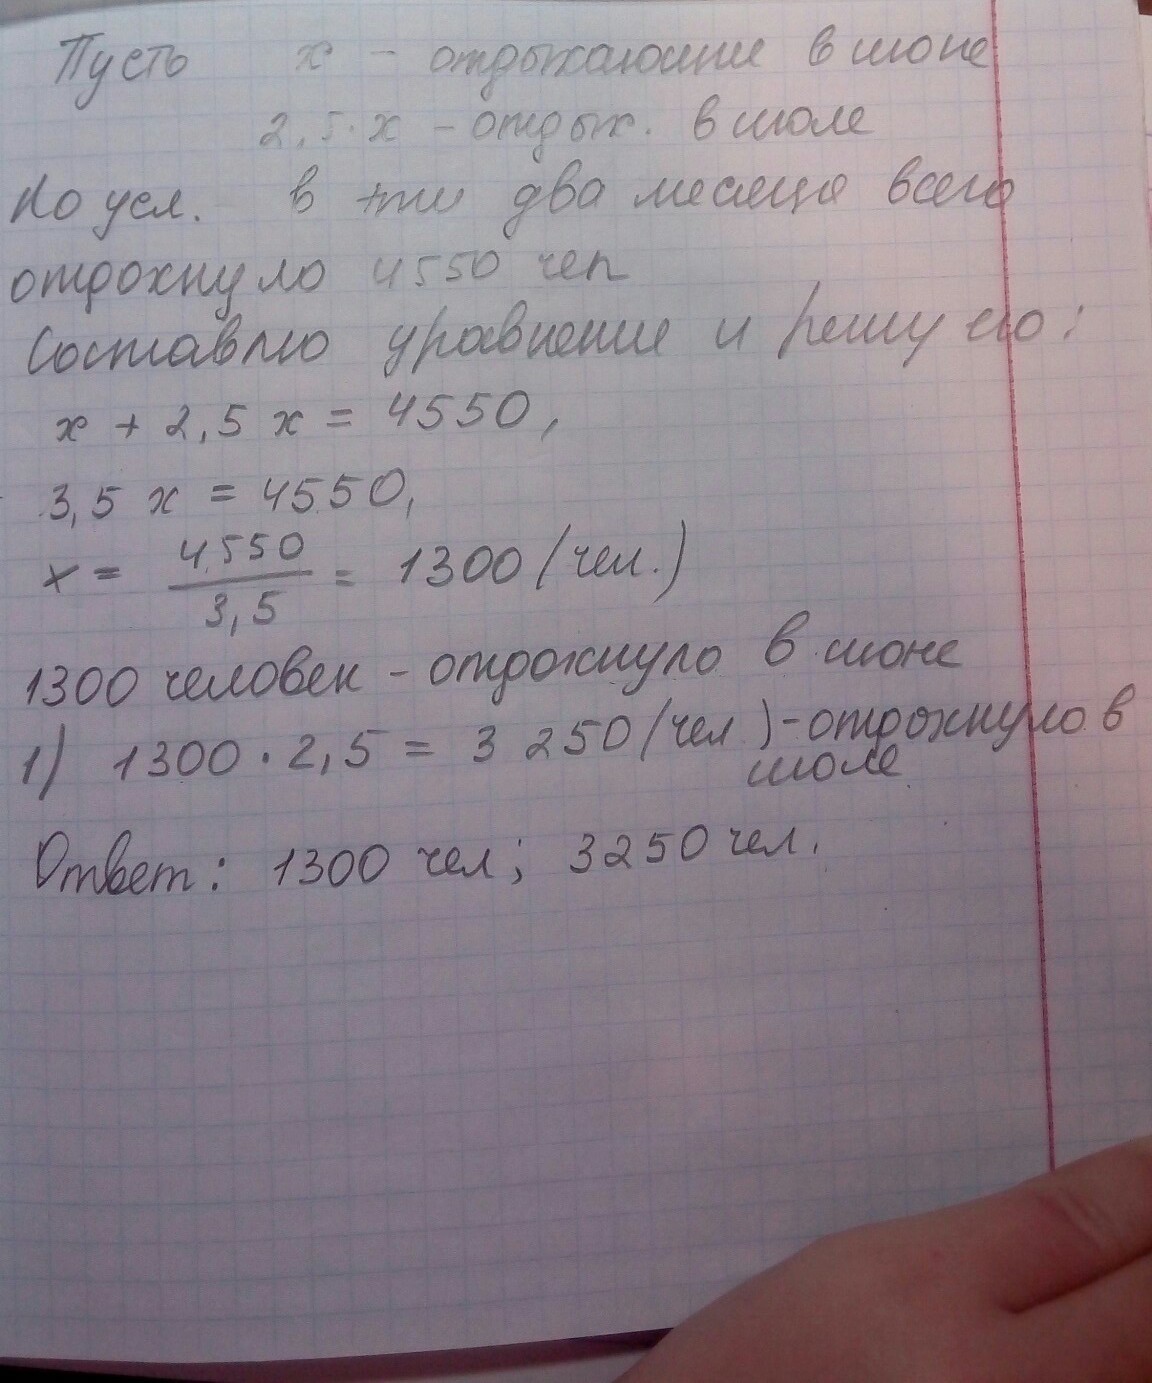 Пусть x - отдыхающие в июне
2,5·x - отдых. в июле
По усл. в эти два месяца всего
отдохнуло 4550 чел
Составлю уравнение и решу его:
x + 2,5 x = 4550,
3,5 x = 4550,
x = 4550/3,5 = 1300 (чел.)
1300 человек - отдохнуло в июне
1) 1300 · 2,5 = 3 250 (чел.) - отдохнуло в
июле
Ответ: 1300 чел; 3250 чел.